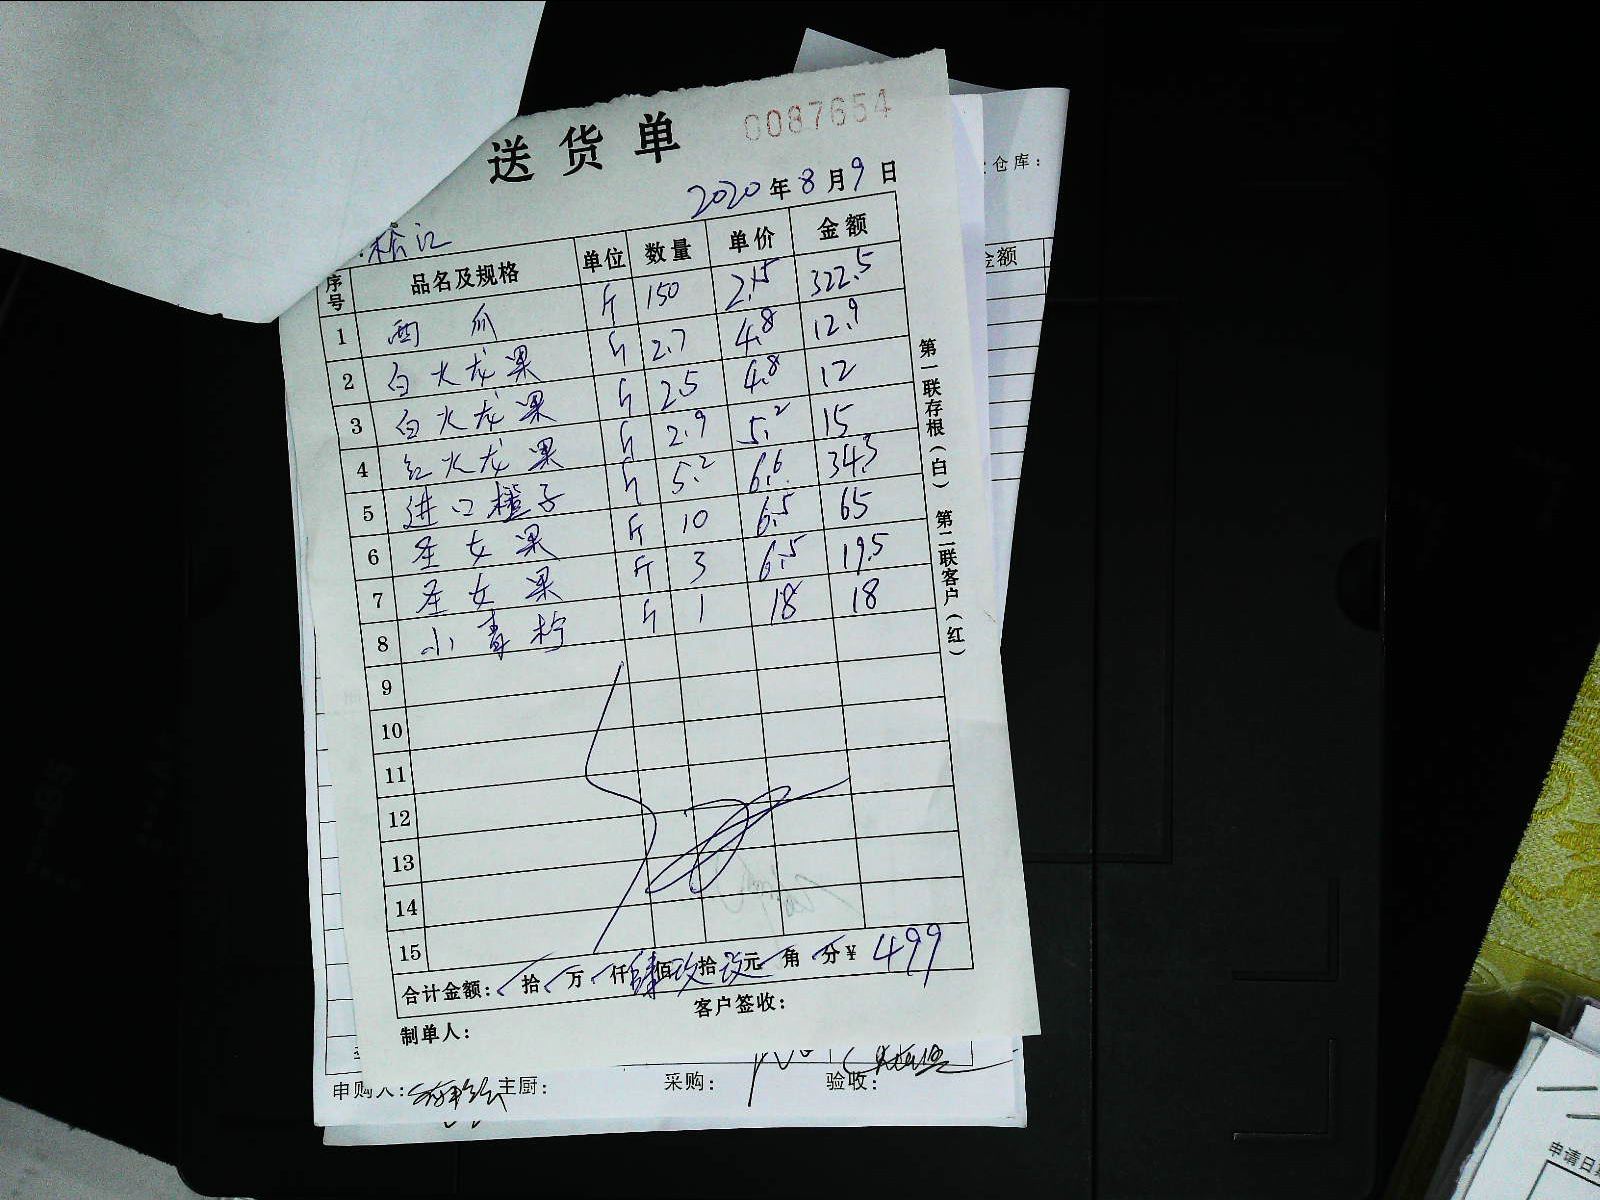 送货单 0087654
2020年8月9日
松江
序号 品名及规格 单位 数量 单价 金额
1 西瓜 斤 150 2.15 322.5
2 白火龙果 斤 2.7 4.8 12.9
3 白火龙果 斤 2.5 4.8 12
4 红火龙果 斤 2.9 5.2 15
5 进口橙子 斤 5.2 6.6 34.3
6 圣女果 斤 10 6.5 65
7 圣女果 斤 3 6.5 19.5
8 小青柠 斤 1 18 18
9
10
11
12
13
14
15
合计金额: 拾 万 仟肆佰玖拾玖元 角 分¥ 499
制单人: 客户签收:
第一联存根(白) 第二联客户(红)
仓库:
金额
申购人: 主厨: 采购: 验收:
申请日期